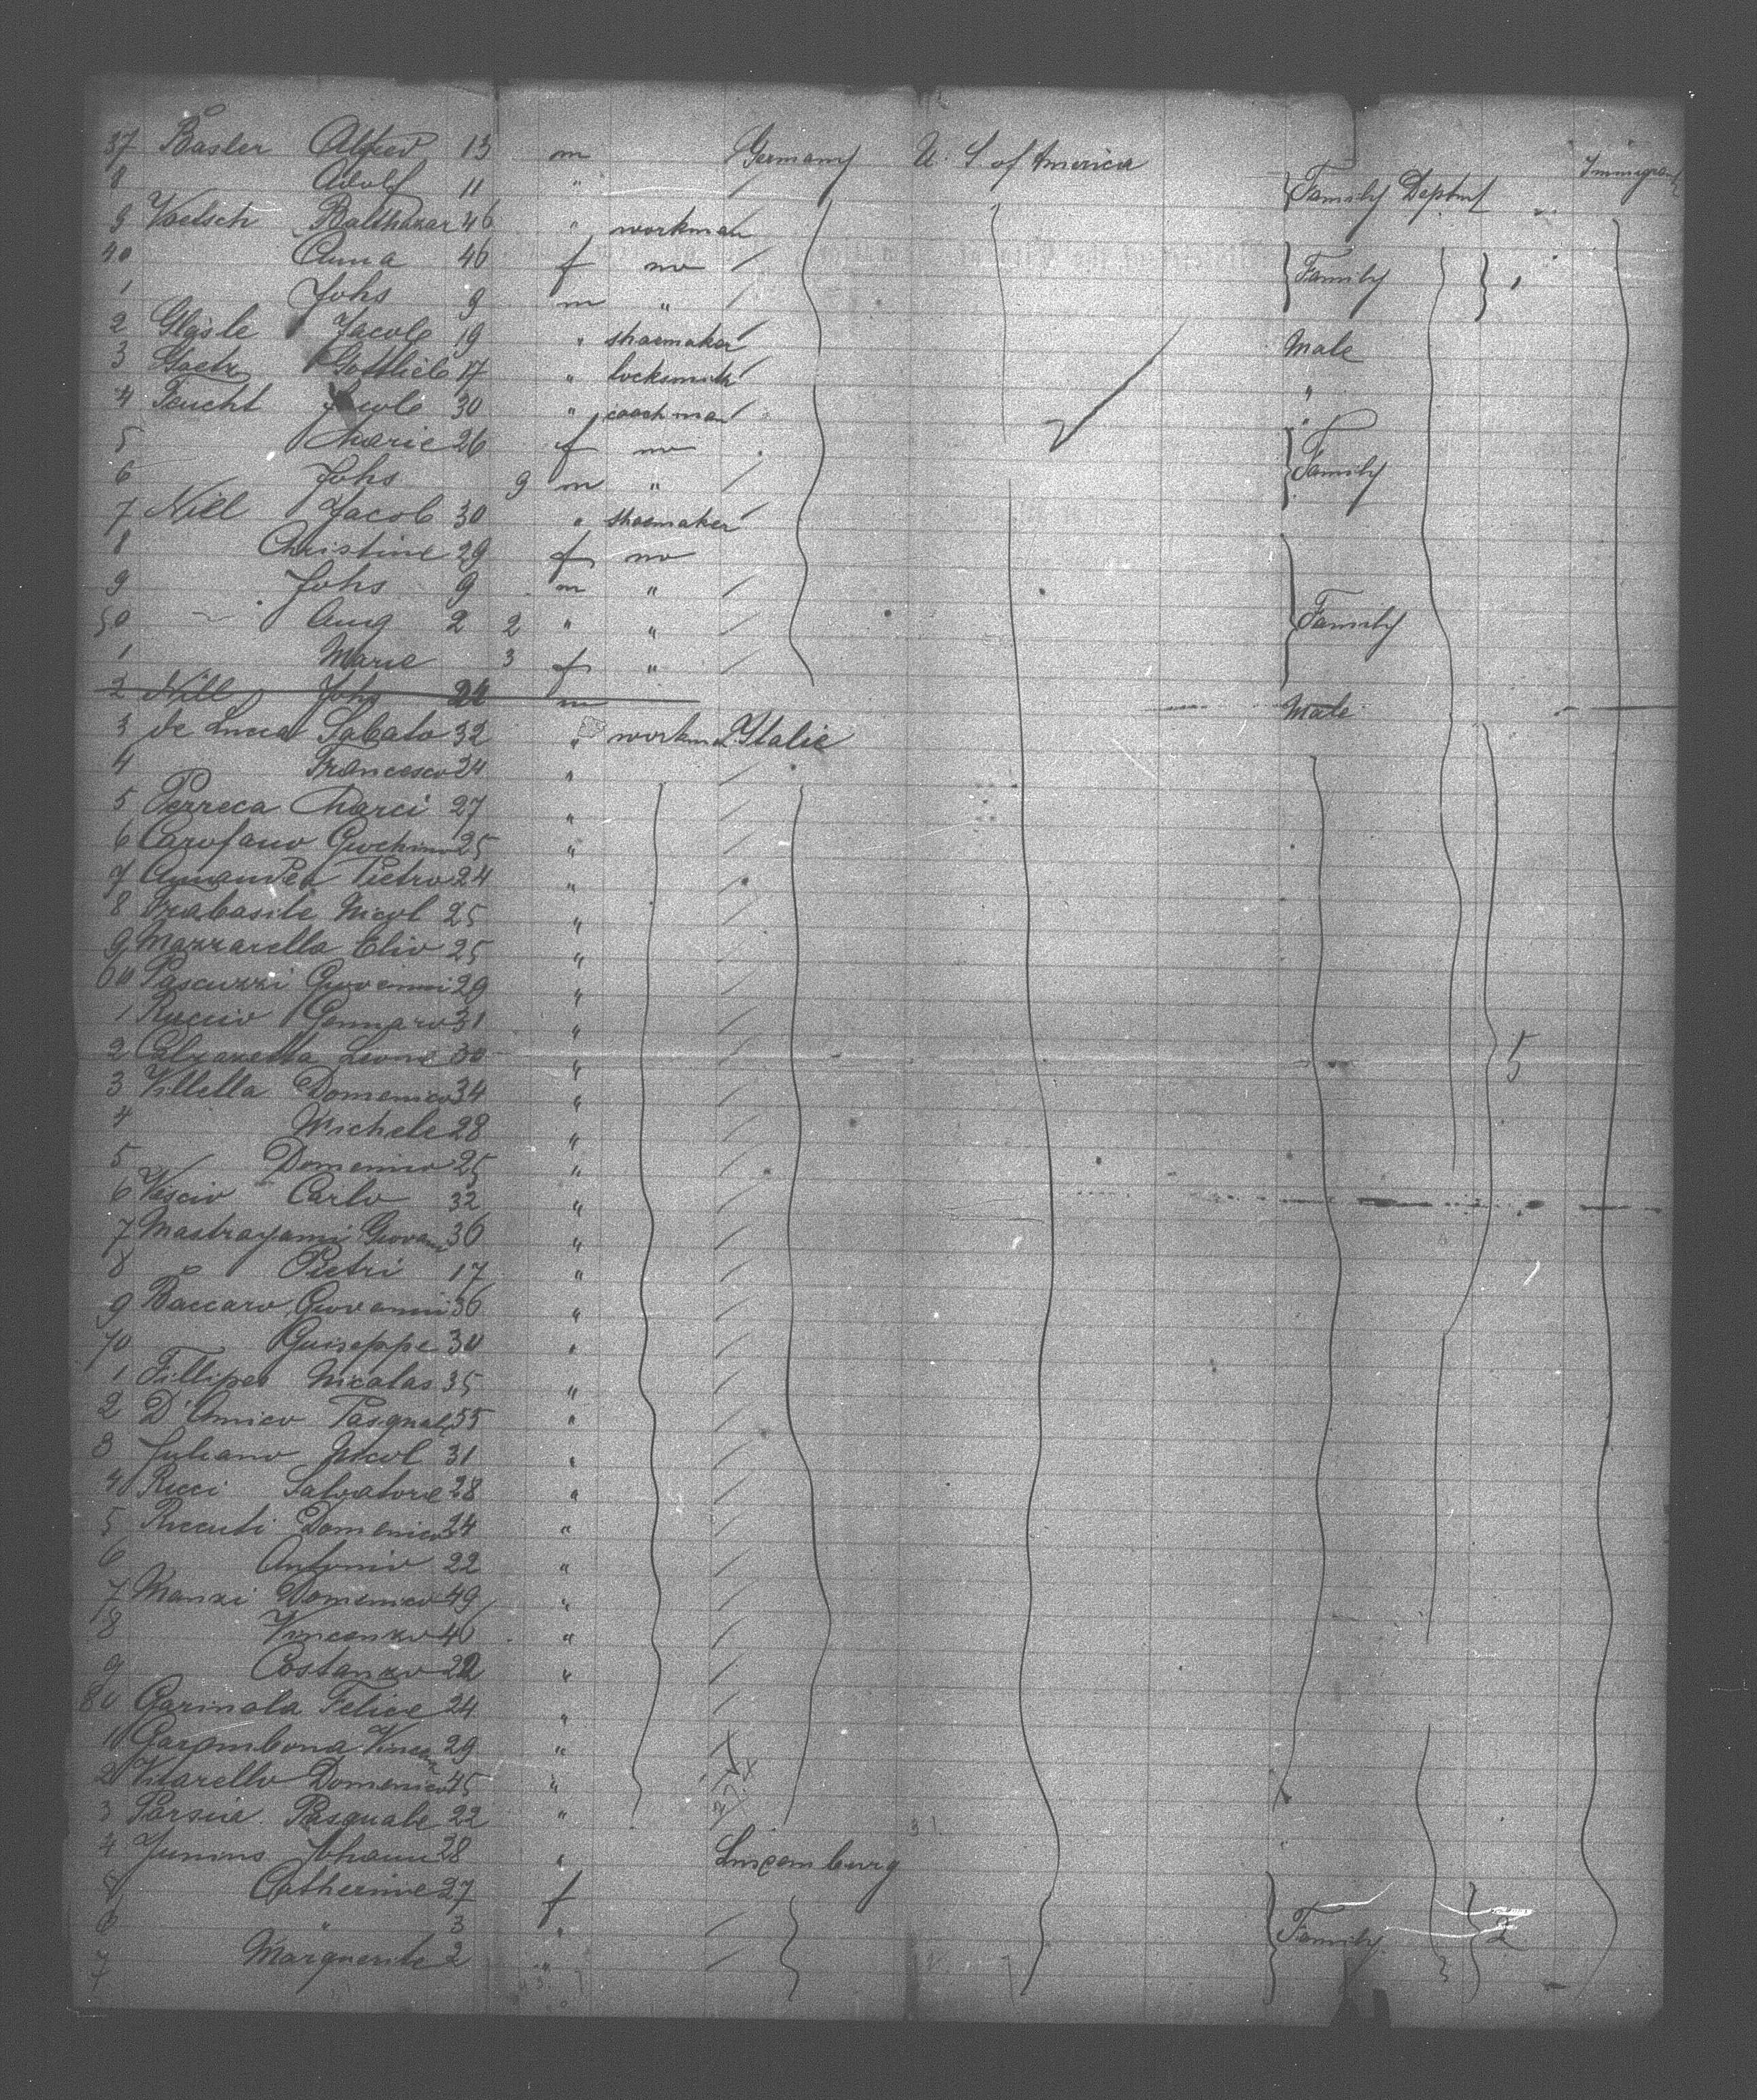 37 Basler Alfred 13 m Germany U. S of America Immigrant
8 Adolf 11 " Family Deptmt
9 Voelsch Balthasar 46 " workman
40 Anna 46 f no Family 1
1 Johs 9 m "
2 Gläsle Jacob 19 " shoemaker Male
3 Goetz Gottlieb 17 " locksmith "
4 Feucht Jacob 30 " coachman "
5 Marie 26 f no Family
6 Johs 9 m "
7 Nill Jacob 30 " shoemaker
8 Christine 29 f no
9 Johs 9 m "
50 Aug 2 2 " " Family
1 Marie 3 f "
2 Nill Johs 24 m Male
3 de Lucca Sabato 32 " workman Italie
4 Francesco 24 "
5 Perreca Marci 27 "
6 Carofano 25 "
7 Pietro 24 "
8 Frabasile Nicol 25 "
9 Mazzarella Elio 25 "
60 Pascuzzi Giovanni 29 "
1 Ruccio Gennaro 31 "
2 Leone 30 "
3 Villella Domenico 34 " 5
4 Michele 28 "
5 Domenico 25 "
6 Vescio Carlo 32 "
7 Giovani 36 "
8 Pietri 17 "
9 Baccaro Giovanni 36 "
70 Guiseppe 30 "
1 Fillipes Nicolas 35 "
2 D'Amico Pasquale 55 "
3 Juliano Nicol 31 "
4 Ricci Salvatore 28 "
5 Riccuti Domenico "
6 Antonio 22 "
7 Manzi Domenico 49 "
8 Vincenzo 40 "
9 Costanzo 22 "
80 Garinola Felice 24 "
1 Garambona 29 "
2 Vitarello Domenico 45 "
3 Pasquale 22 "
4 Junins Johann 28 " Luxemburg
5 Catherine 27 f
6 " 3 " Family 2
7 Marguerite 2 "